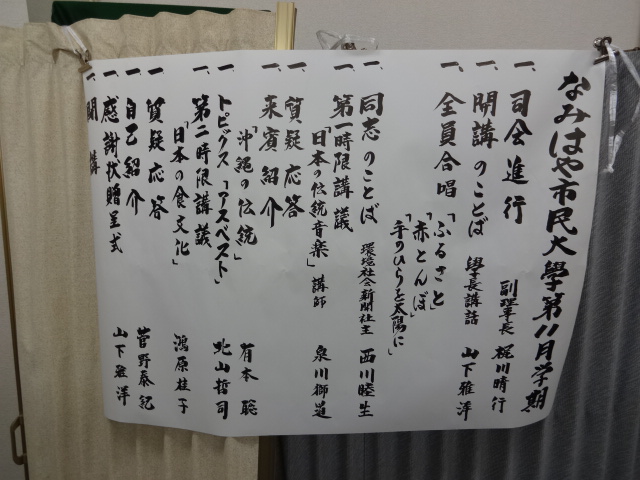 なみはや市民大學第11月学期
一、司会進行 副理事長 梶川晴行
一、開講のことば 學長講話 山下雅洋
一、全員合唱「ふるさと」
「赤とんぼ」
「手のひらを太陽に」
一、同志のことば 環境社会新聞社主 西川睦生
一、第一時限講議
「日本の伝統音楽」講師 泉川獅道
一、質疑応答
一、来賓紹介
「沖縄の伝統」 有本 聡
トピックス「アスベスト」 北山哲司
一、第二時限講議
「日本の食文化」 鴻原桂子
一、質疑応答
一、自己紹介 菅野泰紀
一、感謝状贈呈式 山下雅洋
一、閉講